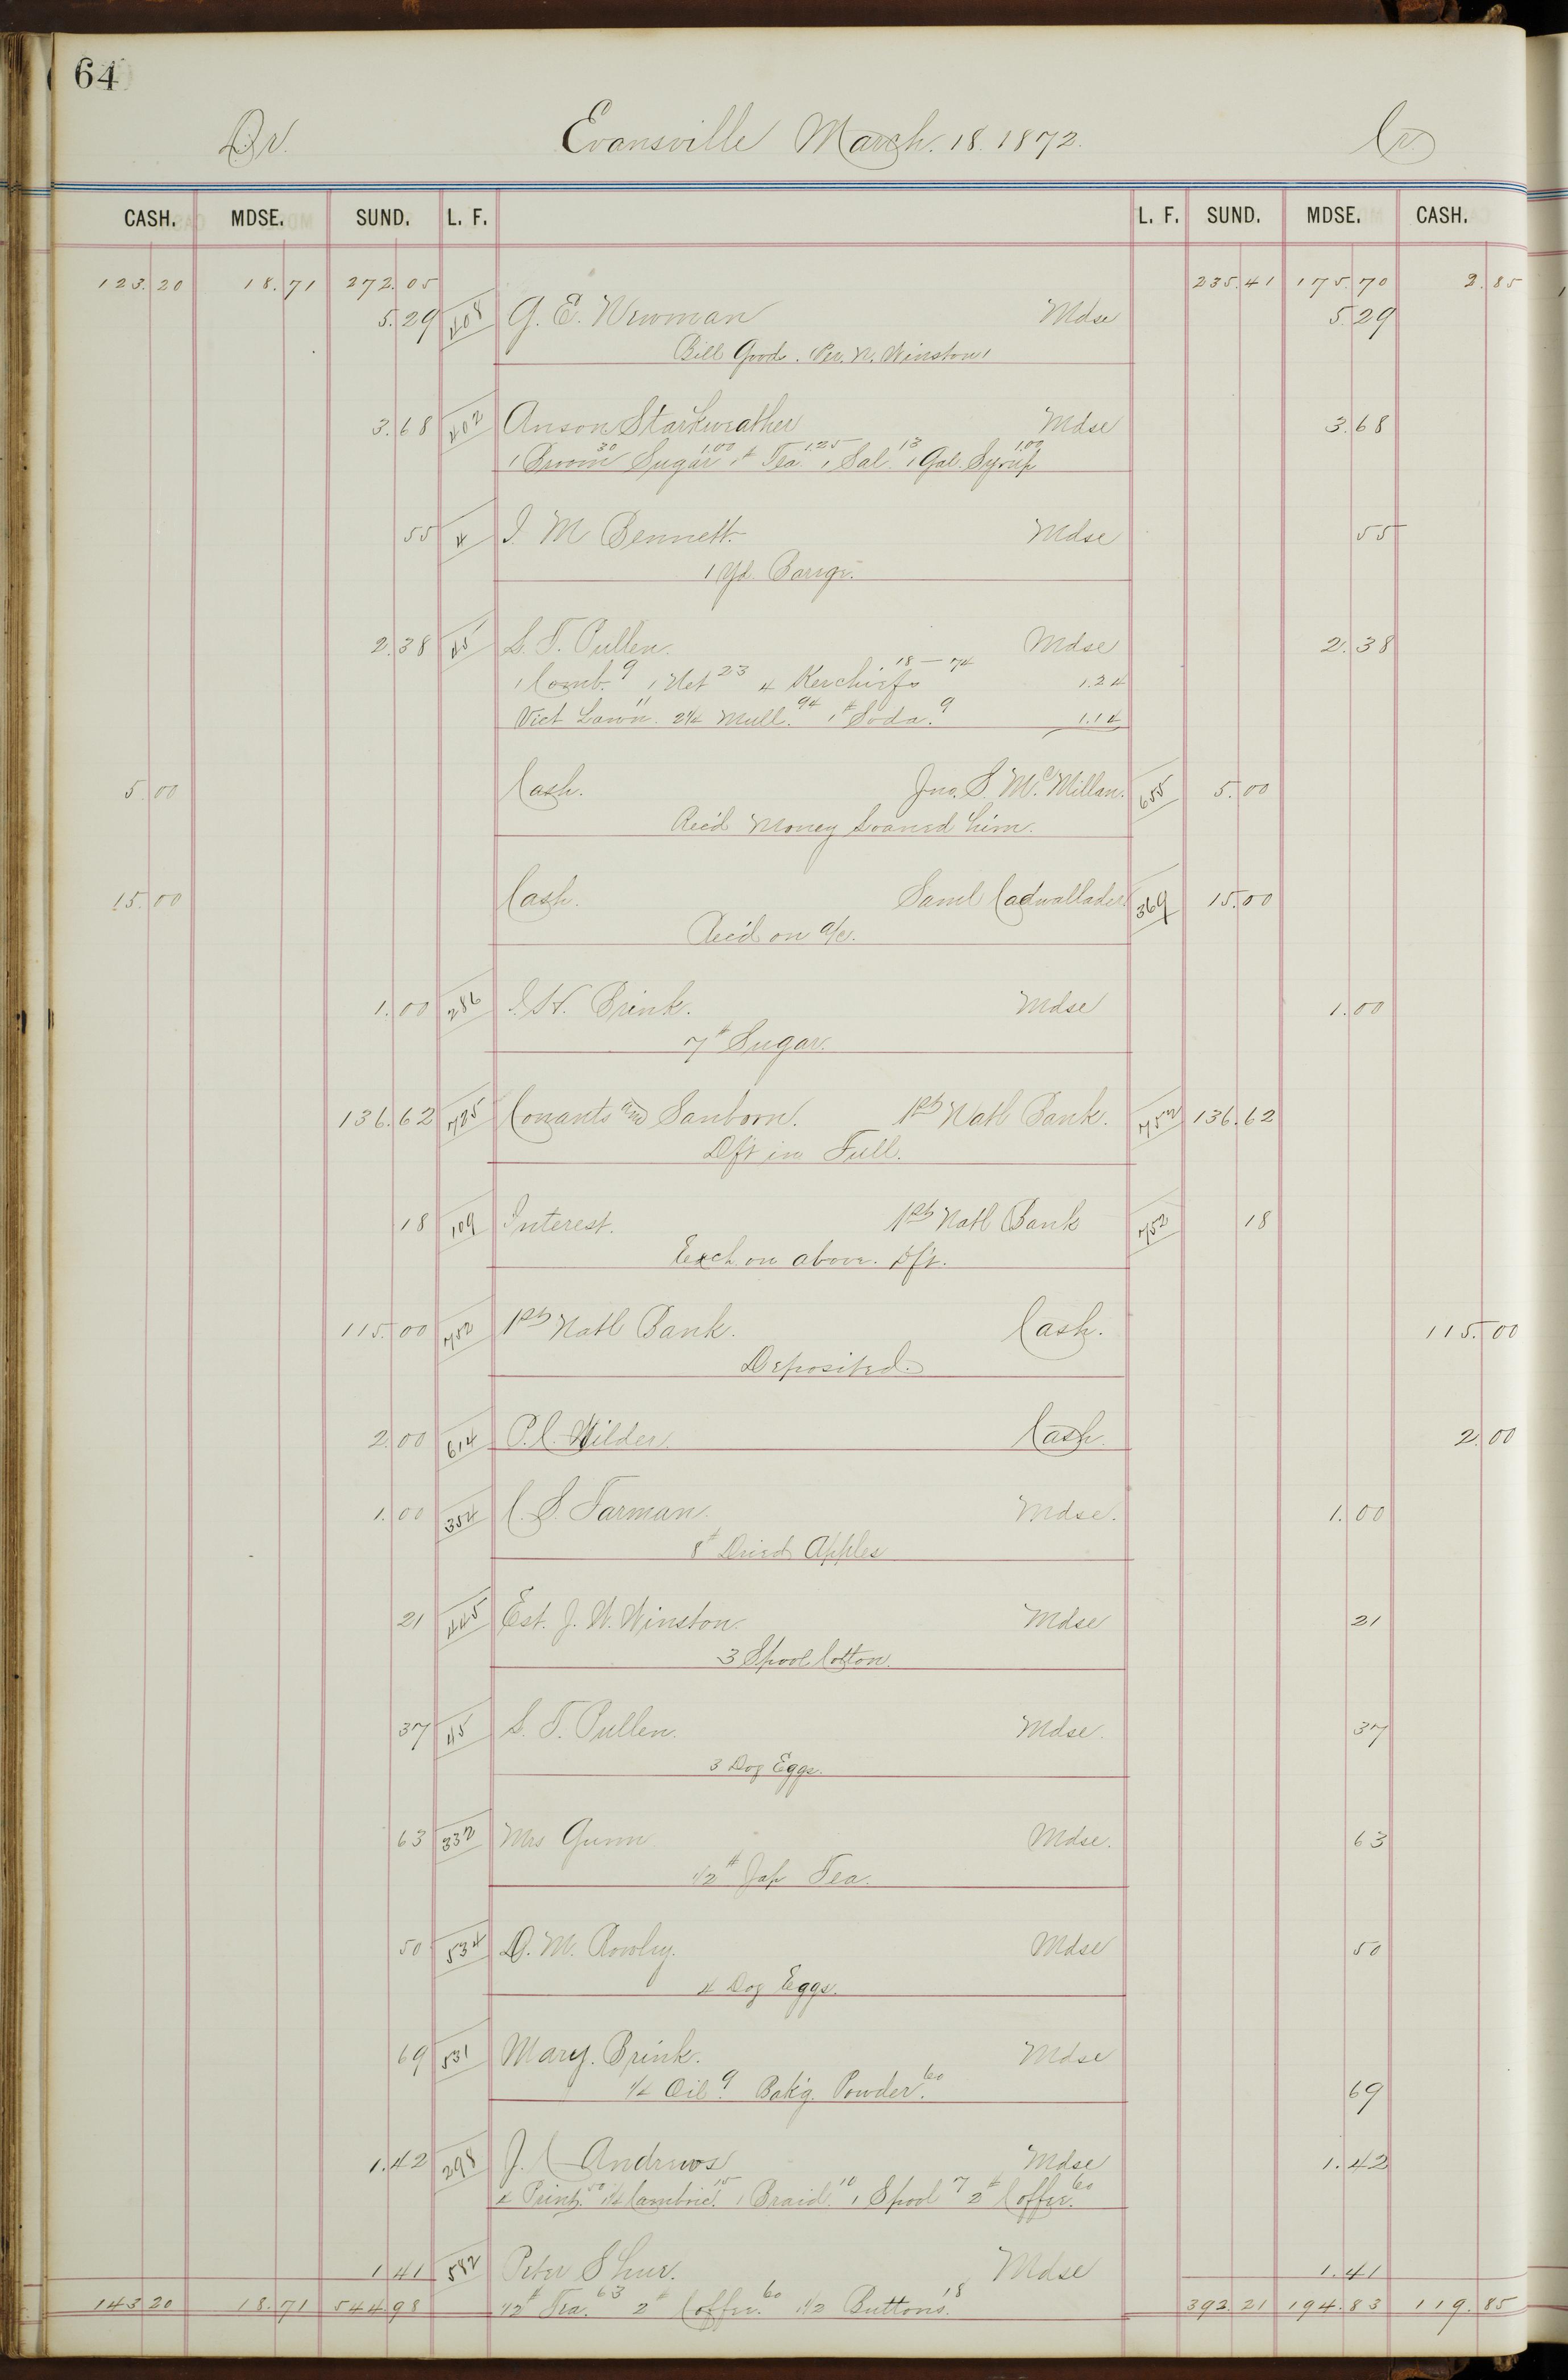 64
Dr. Evansville March. 18. 1872. Cr
CASH. MDSE. SUND. L. F. L. F. SUND. MDSE. CASH.
123.20 18.71 272.05 235.41 175.70 2.85
5.29 408 G. E. Newman Mdse 5.29
Bill Goods. Per. N. Winston
3.68 402 Anson Starkweather Mdse 3.68
1 Broom 30 Sugar 1.00 1# Tea 1.25 1 Sal. 13 1 Gal. Syrup 1.00
55 4 I. M Bennett. Mdse 55
1 Yd. Barege.
2.38 45 L. T. Pullen. Mdse 2.38
1 Comb. 9 1 Net 23 4 Kerchiefs 18 — 74 1.24
Vict Lawn. 11 2¼ Mull. 94 1# Soda. 9 1.14
5.00 Cash. Jno. S. McMillan. 655 5.00
Rec'd Money Loaned him.
15.00 Cash. Saml Cadwallader. 369 15.00
Rec'd on a/c.
1.00 286 I. H. Brink. Mdse 1.00
7# Sugar.
136.62 725 Conants and Sanborn. 1st Natl Bank. 752 136.62
Dft in Full.
18 109 Interest. 1st Natl Bank 752 18
Exch. on above. Dft.
115.00 752 1st Natl Bank. Cash. 115.00
Deposited.
2.00 614 P. C. Wilder. Cash. 2.00
1.00 354 C. S. Farman. Mdse. 1.00
8# Dried Apples
21 445 Est. J. W. Winston. Mdse 21
3 Spool Cotton.
37 45 L. T. Pullen. Mdse. 37
3 Doz Eggs.
63 332 Mrs Gunn Mdse. 63
1/2# Jap Tea.
50 534 D. M. Rowley. Mdse 50
4 Doz Eggs.
69 531 Mary. Brink. Mdse
¼ Oil 9 Bak'g. Powder. 60 69
1.42 298 J. C Andrews Mdse 1.42
4 Print. 50 1¼ Cambric. 15 1 Braid. 10 1 Spool 7 2# Coffee. 60
1.41 582 Peter Mdse 1.41
143.20 18.71 544.98 1/2# Tea. 63 2# Coffee. 60 1½ Buttons. 18 392.21 194.83 119.85